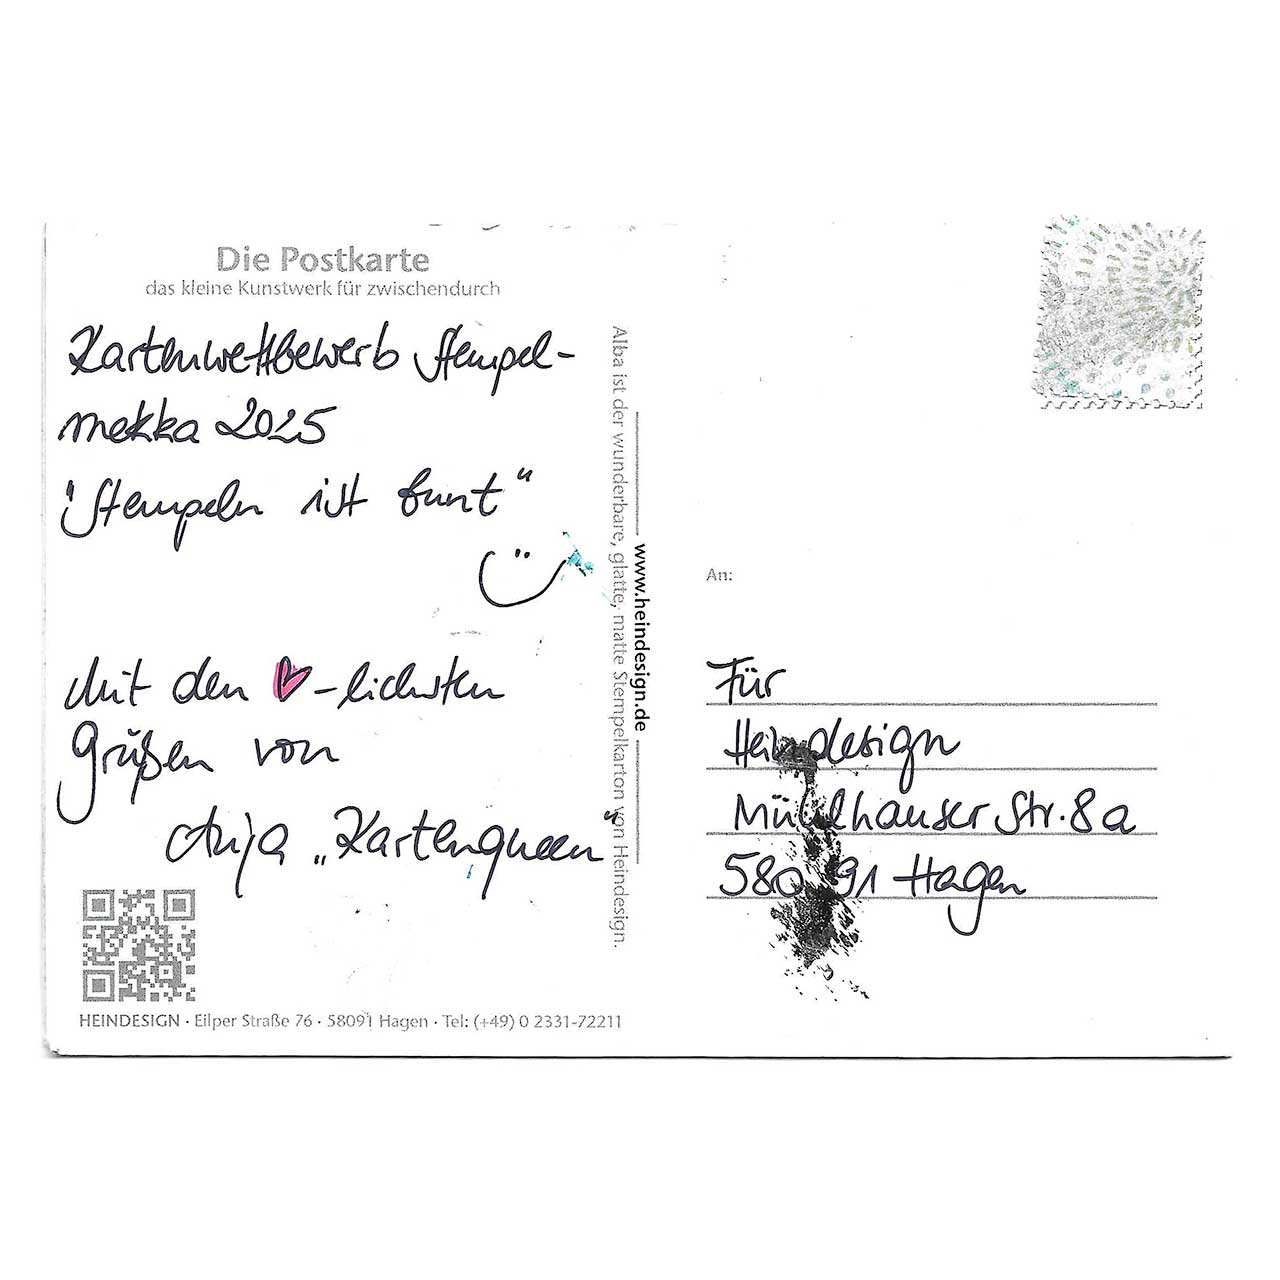 Die Postkarte
das kleine Kunstwerk für zwischendurch
Kartenwettbewerb Stempel-
mekka 2025
"Stempeln ist bunt"
Mit den ♥-lichsten
Grüßen von
Anja „Kartenqueen"
HEINDESIGN · Eilper Straße 76 · 58091 Hagen · Tel: (+49) 0 2331-72211
Alba ist der wunderbare, glatte, matte Stempelkarton von Heindesign.
www.heindesign.de
An:
Für
Heindesign
Mühlhauser Str. 8a
580 91 Hagen